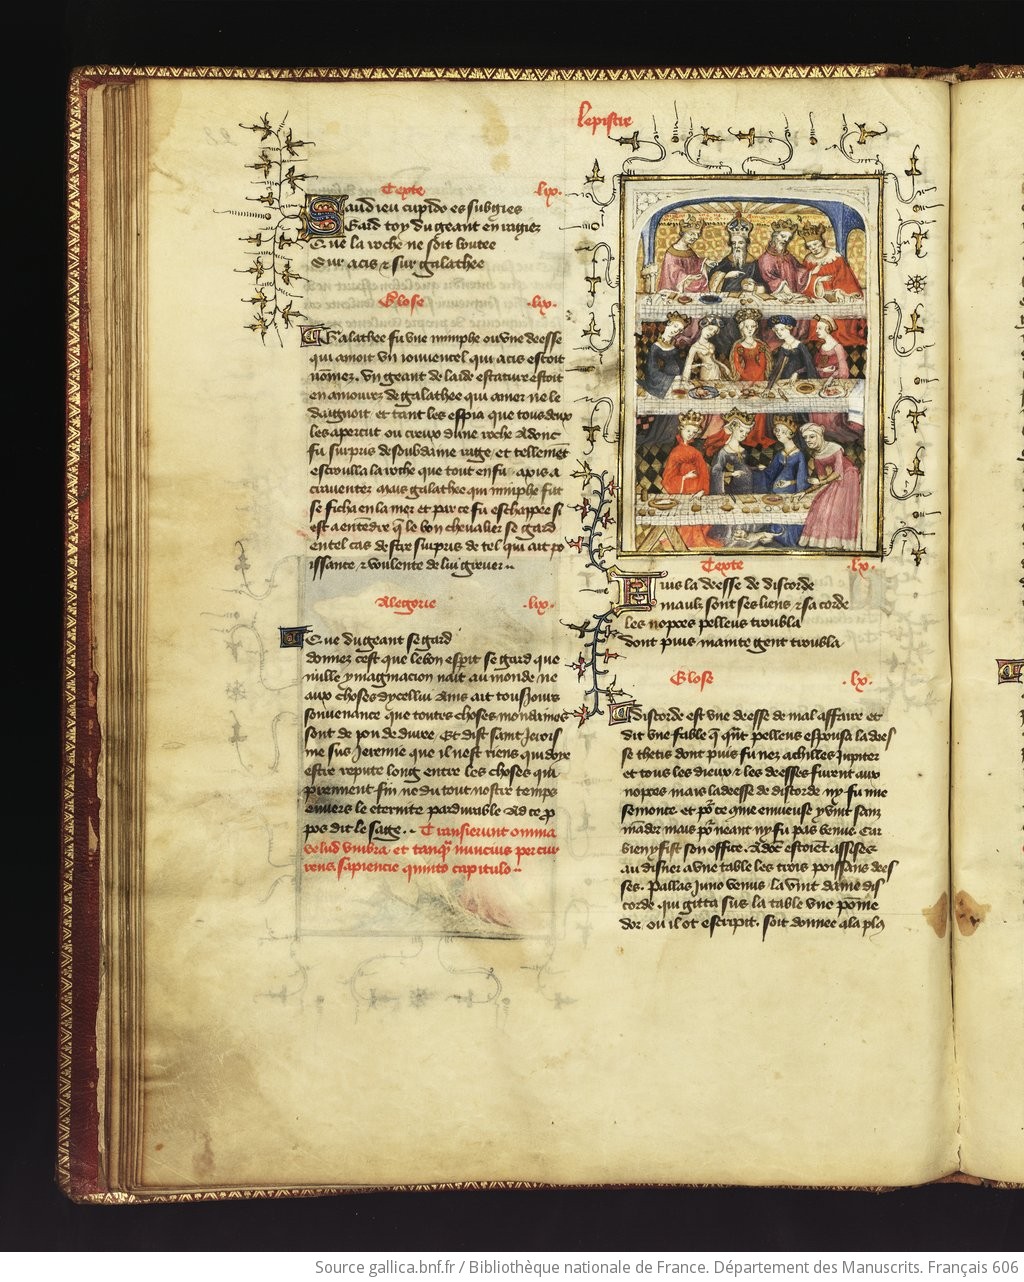 Lepistre
Texte .lix.
Saudieu cupido es subgies
Gard toy du geant enragiez
Que la roche ne soit boutee
Sur acis & sur galathee
Glose .lix.
Galathee fu une nimphe ou une deesse
qui amoit un iouuencel qui acis estoit
nommez. un geant de laide estature estoit
en amourez de galathee qui amer ne le
daignoit et tant les espia que tous deux
les apercut ou creux dune roche Adonc
fu surpris de soubdaine rage et tellement
escroulla la roche que tout en fu acis a
crauentez mais galathee qui nimphe fut
se ficha en la mer et par ce fu eschapee si
est a entẽdre q̃ le bon cheualier se gard
en tel cas destre surpris de tel qui ait po
issance & voulente de lui greuer..
Alegorie .lix.
Que du geant se gard
donnez cest que le bon esperit se gard que
nulle ymaginacion nait au monde ne
aux choses dycellui Ains ait tousiours
souuenance que toutes choses mondaines
sont de pou de duree. Et dist saint Jerois
me sus Jeremie que il nest riens qui doye
estre repute long entre les choses qui
prennent fin ne du tout nostre temps
enuers le eternite pardurable Ad ce p̃
pos dit le sage.. Transierunt omnia
velud vmbra et tanq̃ nuncius percur
rens. sapiencie quinto capitulo..
Texte .lx.
Fuis la deesse de discorde
mauls sont ses liens & sa corde
les nopces pelleus troubla
dont puis mainte gent troubla
Glose .lx.
Discorde est une deesse de mal affaire et
dit une fable q̃ qñt pelleus espousa la dees
se thetis dont puis fu nez achilles Jupiter
et tous les dieux & les deesses furent aux
nopces mais la deesse de discorde ny fu mie
semonce et põ ce q̃me enuieuse y vint sanz
mãder mais põ neant ny fu pas venue Car
bien y fist son office. Adõc estoiẽt assises
au disner a une table les trois poissans dees
ses. Pallas Juno venus la vint dame dis
corde. qui gitta sus la table une põme
dor ou il ot escripit. soit donnee a la plꝰ
Source gallica.bnf.fr / Bibliothèque nationale de France. Département des Manuscrits. Français 606